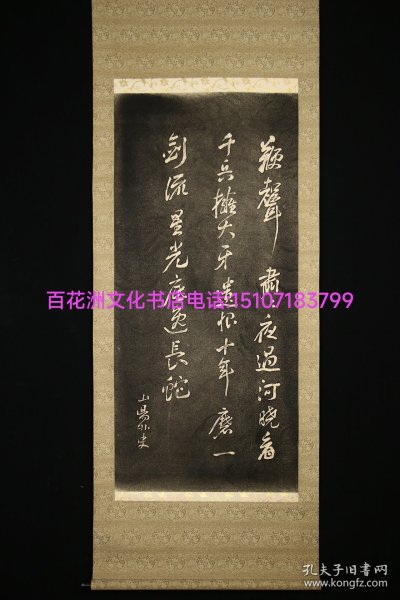 鞭聲肅〻夜過河曉看
千兵擁大牙遺恨十年磨一
劍流星光底逸長蛇
山陽外史
百花洲文化书店电话15107183799
孔夫子旧书网
www.kongfz.com